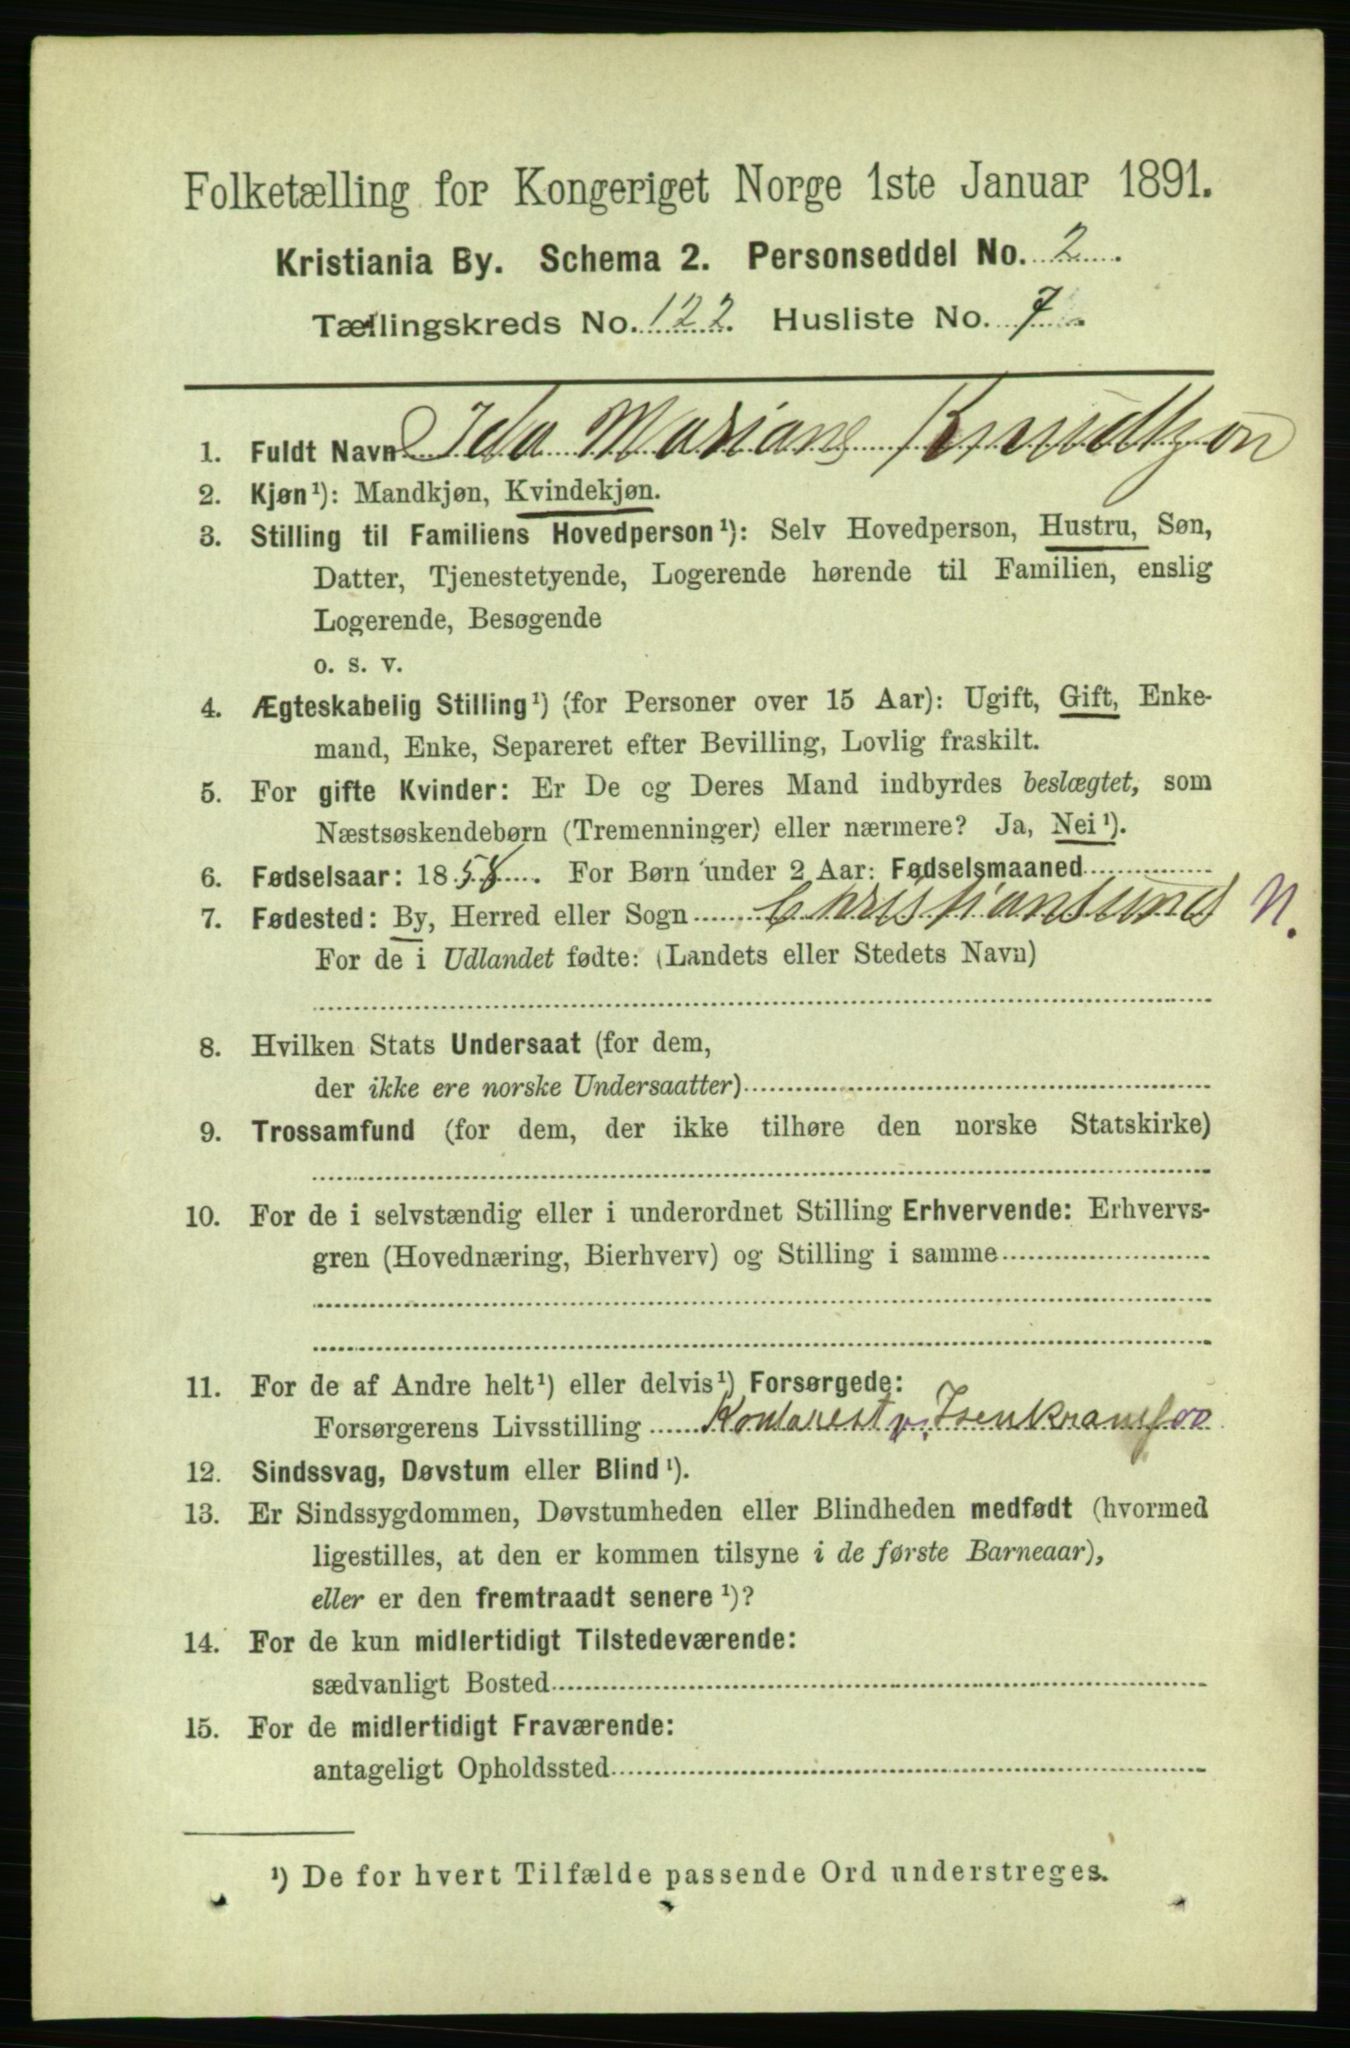 Folketælling for Kongeriget Norge 1ste Januar 1891.
Kristiania By. Schema 2. Personseddel No. 2.
Tællingskreds No. 122. Husliste No. 7.
1. Fuldt Navn Ida Mariane Knudtzon
2. Kjøn¹): Mandkjøn, Kvindekjøn.
3. Stilling til Familiens Hovedperson¹): Selv Hovedperson, Hustru, Søn,
Datter, Tjenestetyende, Logerende hørende til Familien, enslig
Logerende, Besøgende
o. s. v.
4. Ægteskabelig Stilling¹) (for Personer over 15 Aar): Ugift, Gift, Enke-
mand, Enke, Separeret efter Bevilling, Lovlig fraskilt.
5. For gifte Kvinder: Er De og Deres Mand indbyrdes beslægtet, som
Næstsøskendebørn (Tremenninger) eller nærmere? Ja, Nei¹).
6. Fødselsaar: 1858. For Børn under 2 Aar: Fødselsmaaned
7. Fødested: By, Herred eller Sogn Christiansund N.
For de i Udlandet fødte: (Landets eller Stedets Navn)
8. Hvilken Stats Undersaat (for dem,
der ikke ere norske Undersaatter)
9. Trossamfund (for dem, der ikke tilhøre den norske Statskirke)
10. For de i selvstændig eller i underordnet Stilling Erhvervende: Erhvervs-
gren (Hovednæring, Bierhverv) og Stilling i samme
11. For de af Andre helt¹) eller delvis¹) Forsørgede:
Forsørgerens Livsstilling Kontorist
12. Sindssvag, Døvstum eller Blind¹).
13. Er Sindssygdommen, Døvstumheden eller Blindheden medfødt (hvormed
ligestilles, at den er kommen tilsyne i de første Barneaar),
eller er den fremtraadt senere¹)?
14. For de kun midlertidigt Tilstedeværende:
sædvanligt Bosted
15. For de midlertidigt Fraværende:
antageligt Opholdssted
¹) De for hvert Tilfælde passende Ord understreges.